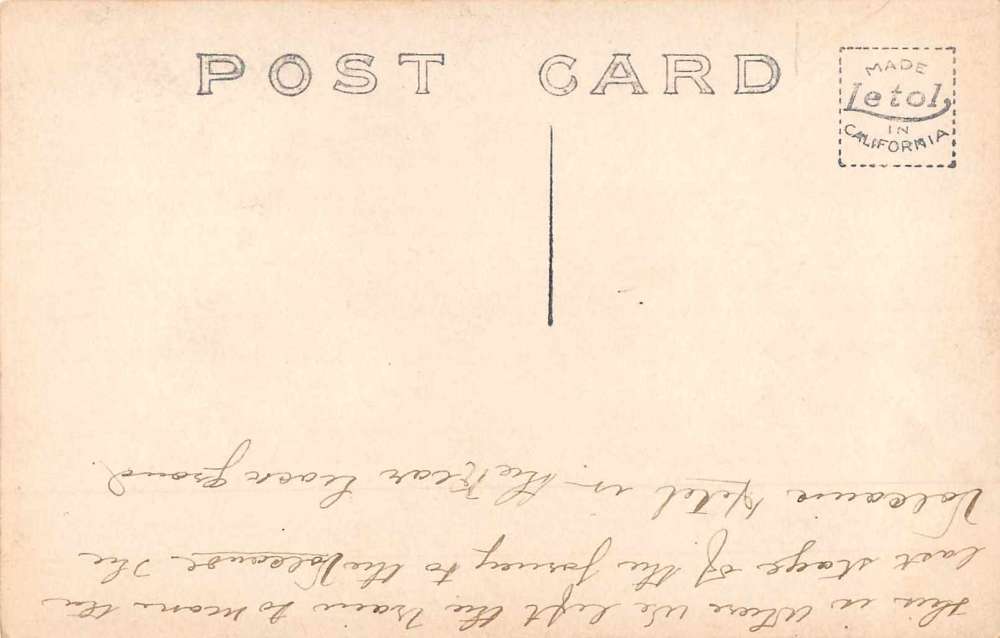 POST CARD
MADE
Letol
IN
CALIFORNIA
This is where We left the train to make the
last stage of the jorney to the Volcanoe The
Volcano Hotel in the Rear back ground